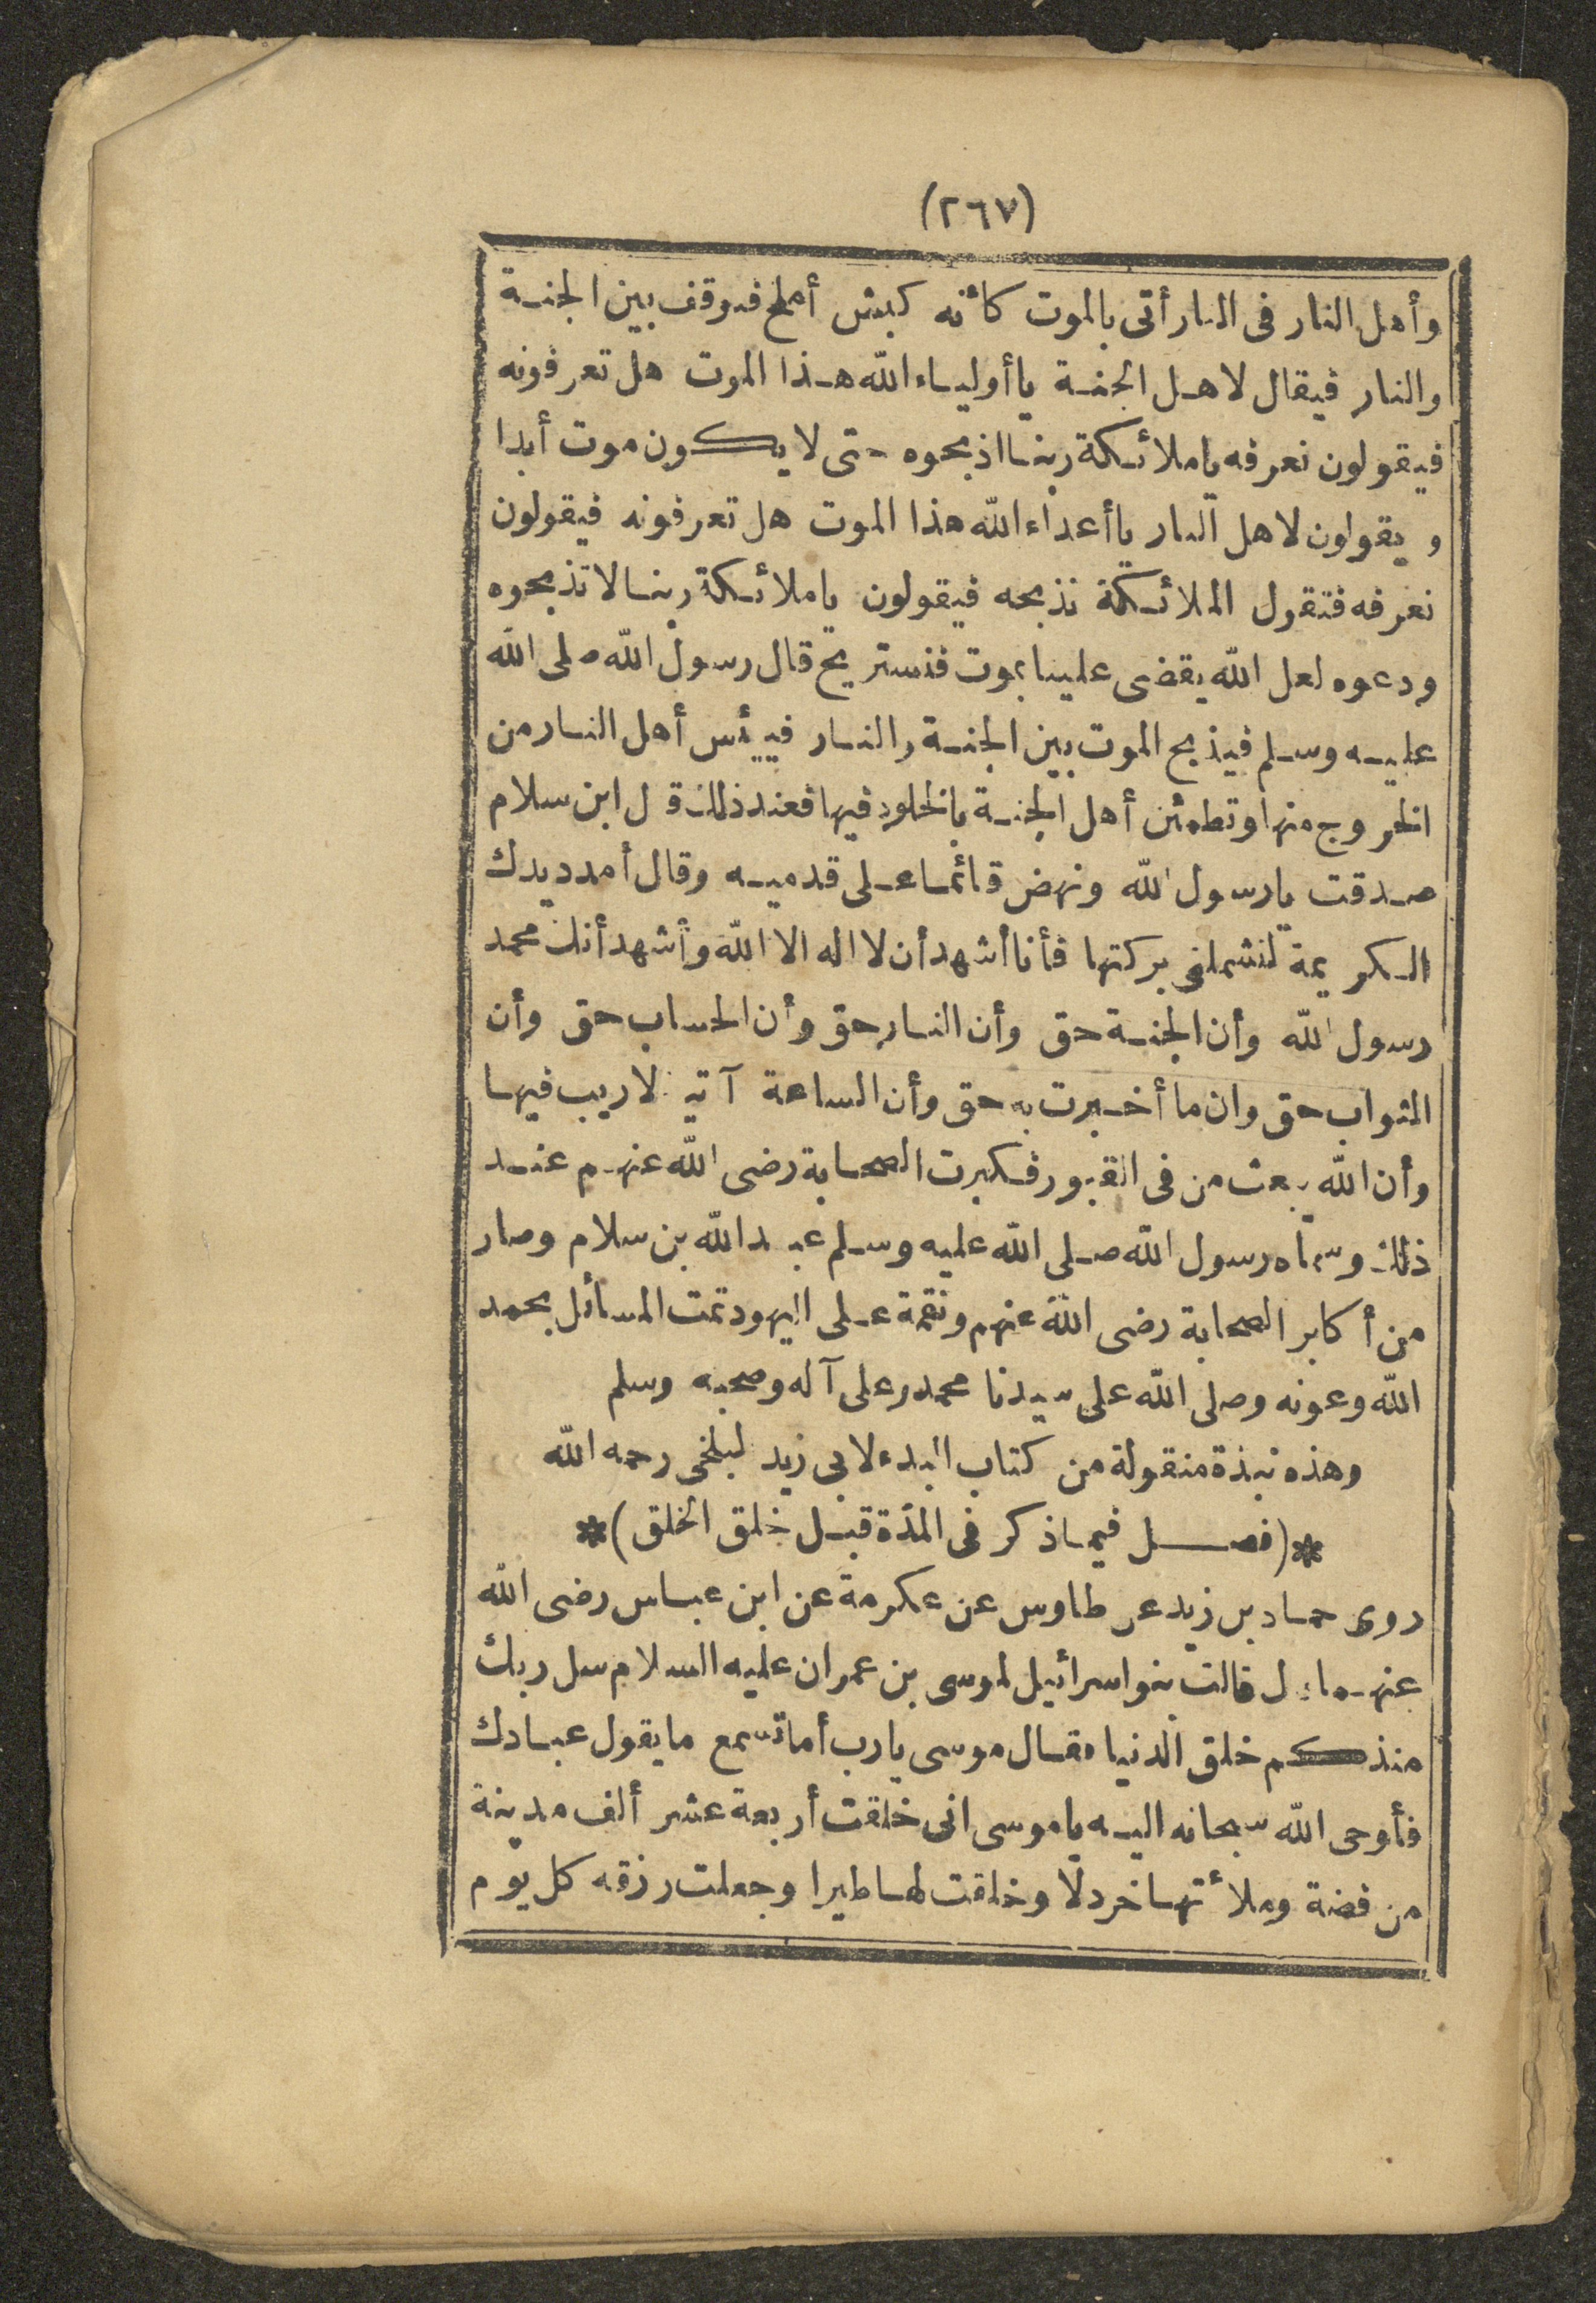 (٢٦٧)
وأهل النار فى النار أتى بالموت كأنه كبش أملح فيوقف بين الجنة
والنار فيقال لاهل الجنة ياأولياء الله هذا الموت هل تعرفونه
فيقولون نعرفه ياملائكة ربنا اذبحوه حتى لا يكون موت أبدا
ويقولون لاهل النار ياأعداء الله هذا الموت هل تعرفونه فيقولون
نعرفه فتقول الملائكة نذبحه فيقولون ياملائكة ربنا لا تذبحوه
ودعوه لعل الله يقضى علينا بموت فنستريح قال رسول الله صلى الله
عليه وسلم فيذبح الموت بين الجنة والنار فييأس أهل النار من
الخروج منها وتطمئن أهل الجنة بالخلود فيها فعند ذلك قال ابن سلام
صدقت يارسول الله ونهض قائما على قدميه وقال أمدد يدك
الكريمة لتشملنى بركتها فأنا أشهد أن لا اله الا الله وأشهد أنك محمد
رسول الله وأن الجنة حق وأن النار حق وأن الحساب حق وأن
الثواب حق وان ما أخبرت به حق وأن الساعة آتية لاريب فيها
وأن الله يبعث من فى القبور فكبرت الصحابة رضى الله عنهم عند
ذلك وسماه رسول الله صلى الله عليه وسلم عبد الله بن سلام وصار
من أكابر الصحابة رضى الله عنهم ونقمة على اليهود تمت المسائل بحمد
الله وعونه وصلى الله على سيدنا محمد وعلى آله وصحبه وسلم
وهذه نبذة منقولة من كتاب البدء لابى زيد البلخى رحمه الله
*(فصل فيما ذكر فى المدّة قبل خلق الخلق)*
روى حماد بن زيد عن طاوس عن عكرمة عن ابن عباس رضى الله
عنهما قال قالت بنو اسرائيل لموسى بن عمران عليه السلام سل ربك
منذ كم خلق الدنيا فقال موسى يارب أما تسمع ما يقول عبادك
فأوحى الله سبحانه اليه ياموسى انى خلقت أربعة عشر ألف مدينة
من فضة وملأتها خردلا وخلقت لها طيرا وجعلت رزقه كل يوم